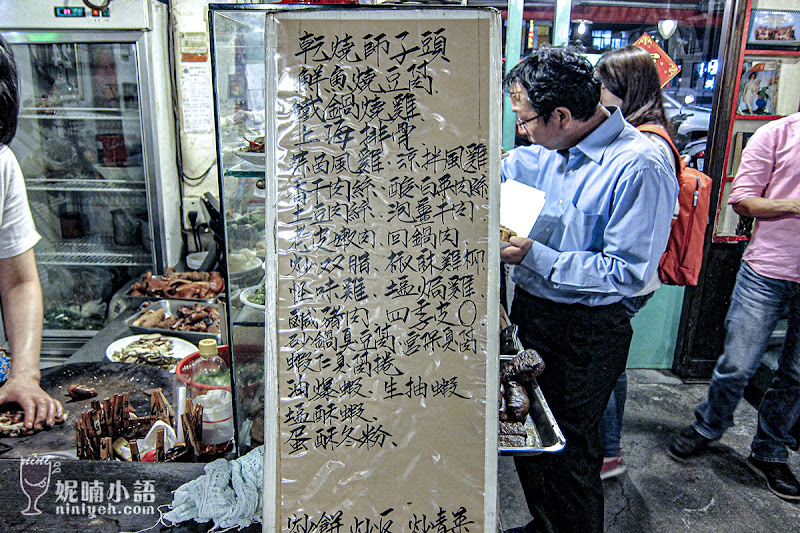 乾燒師子頭
鮮魚燒豆腐
鐵鍋燒雞
上海排骨
涼拌風雞
香干肉絲、酸白菜肉絲
土豆肉絲、泡薑牛肉
嫩肉、回鍋肉
炒双腊、椒酥雞柳
怪味雞、塩焗雞
鹹豬肉 四季豆〇
砂鍋臭豆腐 宮保臭豆腐
蝦仁
油爆蝦、生抽蝦
塩酥蝦、
蛋酥冬粉、
炒餅 炒豆 炒青菜
妮喃小語
niniyeh.com